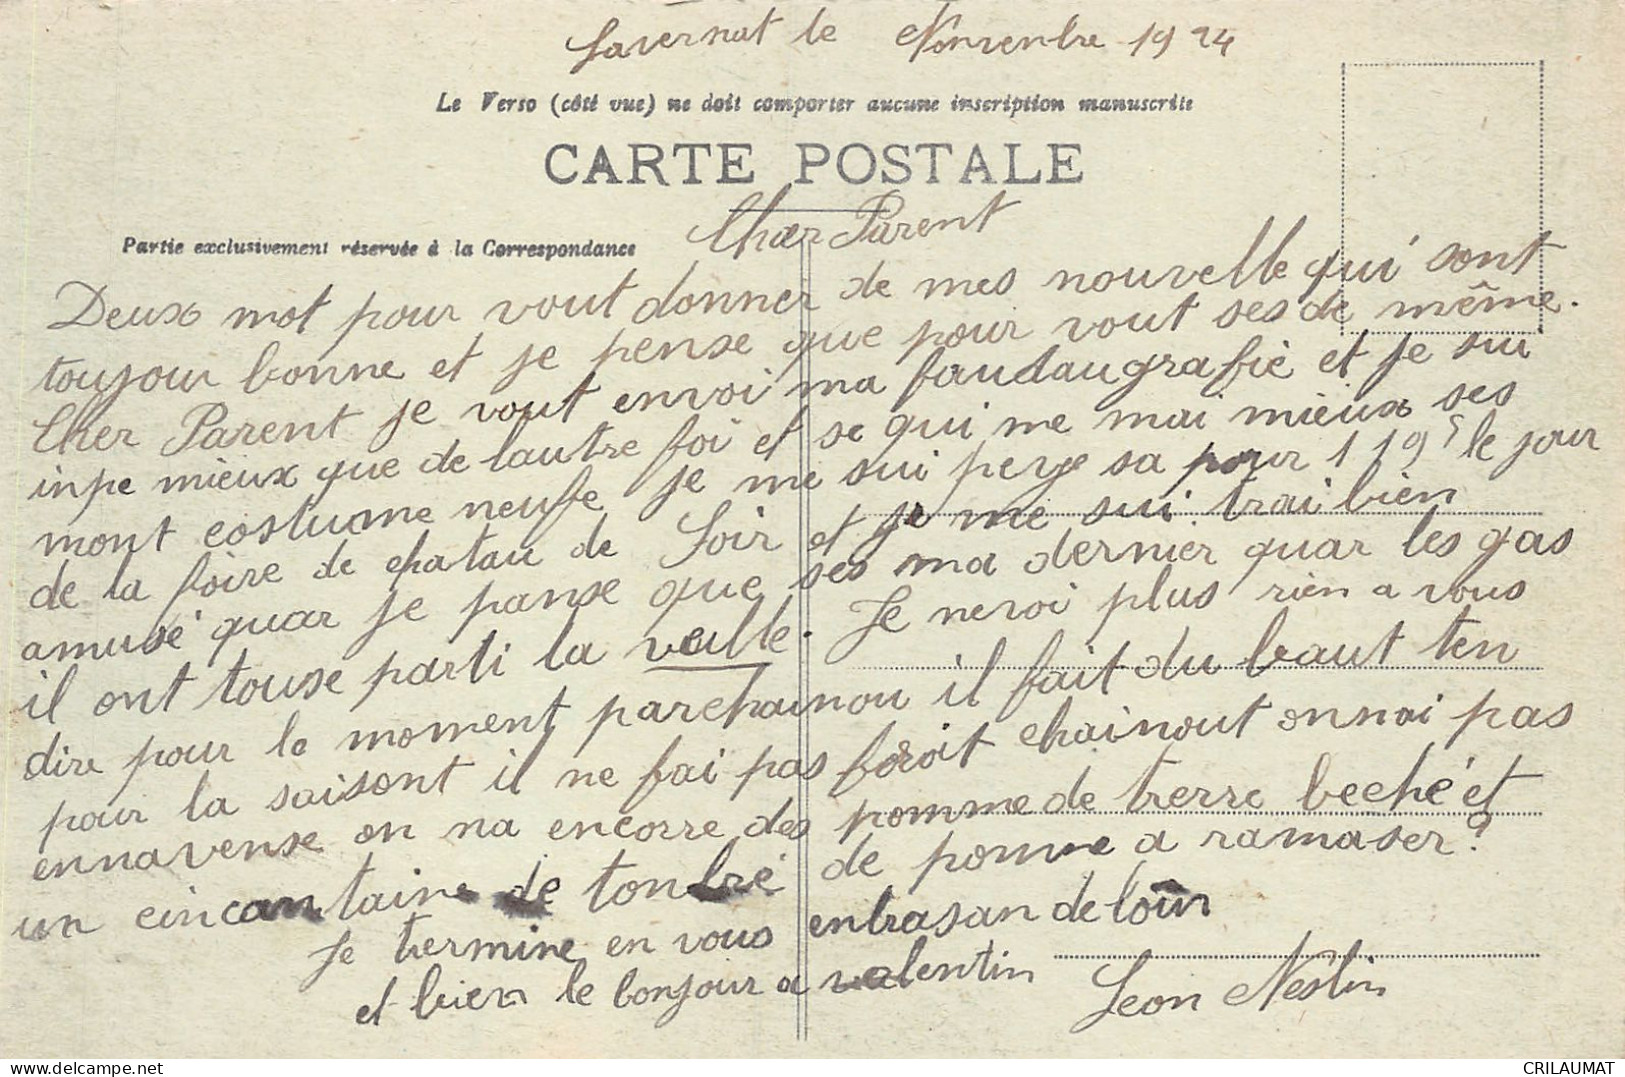 Lavernat le Novenbre 1924
Le Verso (côté vue) ne doit comporter aucune inscription manuscrite
CARTE POSTALE
Partie exclusivement réservée à la Correspondance
Cher Parent
Deux mot pour vout donner de mes nouvelle qui sont
toujour bonne et je pense que pour vout ses de même.
Cher Parent je vout envoi ma faudaugrafie et je sui
inpe mieux que de lautre foi et se qui me mai mieux ses
mont costume neufe je me sui peye sa pour 119 le jour
de la foire de chatau de Loir et je me sui trai bien
amusé quar je panse que ses ma dernier quar les gas
il ont touse parti la veille. Je nevoi plus rien a vous
dire pour le moment parchainou il fait du baut ten
pour la saisont il ne fai pas froit chainout onnai pas
ennavense on na encorre des pomme de terre beché et
un cincantaine de tonbré de pomme a ramaser?
Je termine en vous enbrasan de loin
et bien le bonjour a valentin
Leon Neslin
CRILAUMAT
delcampe.net